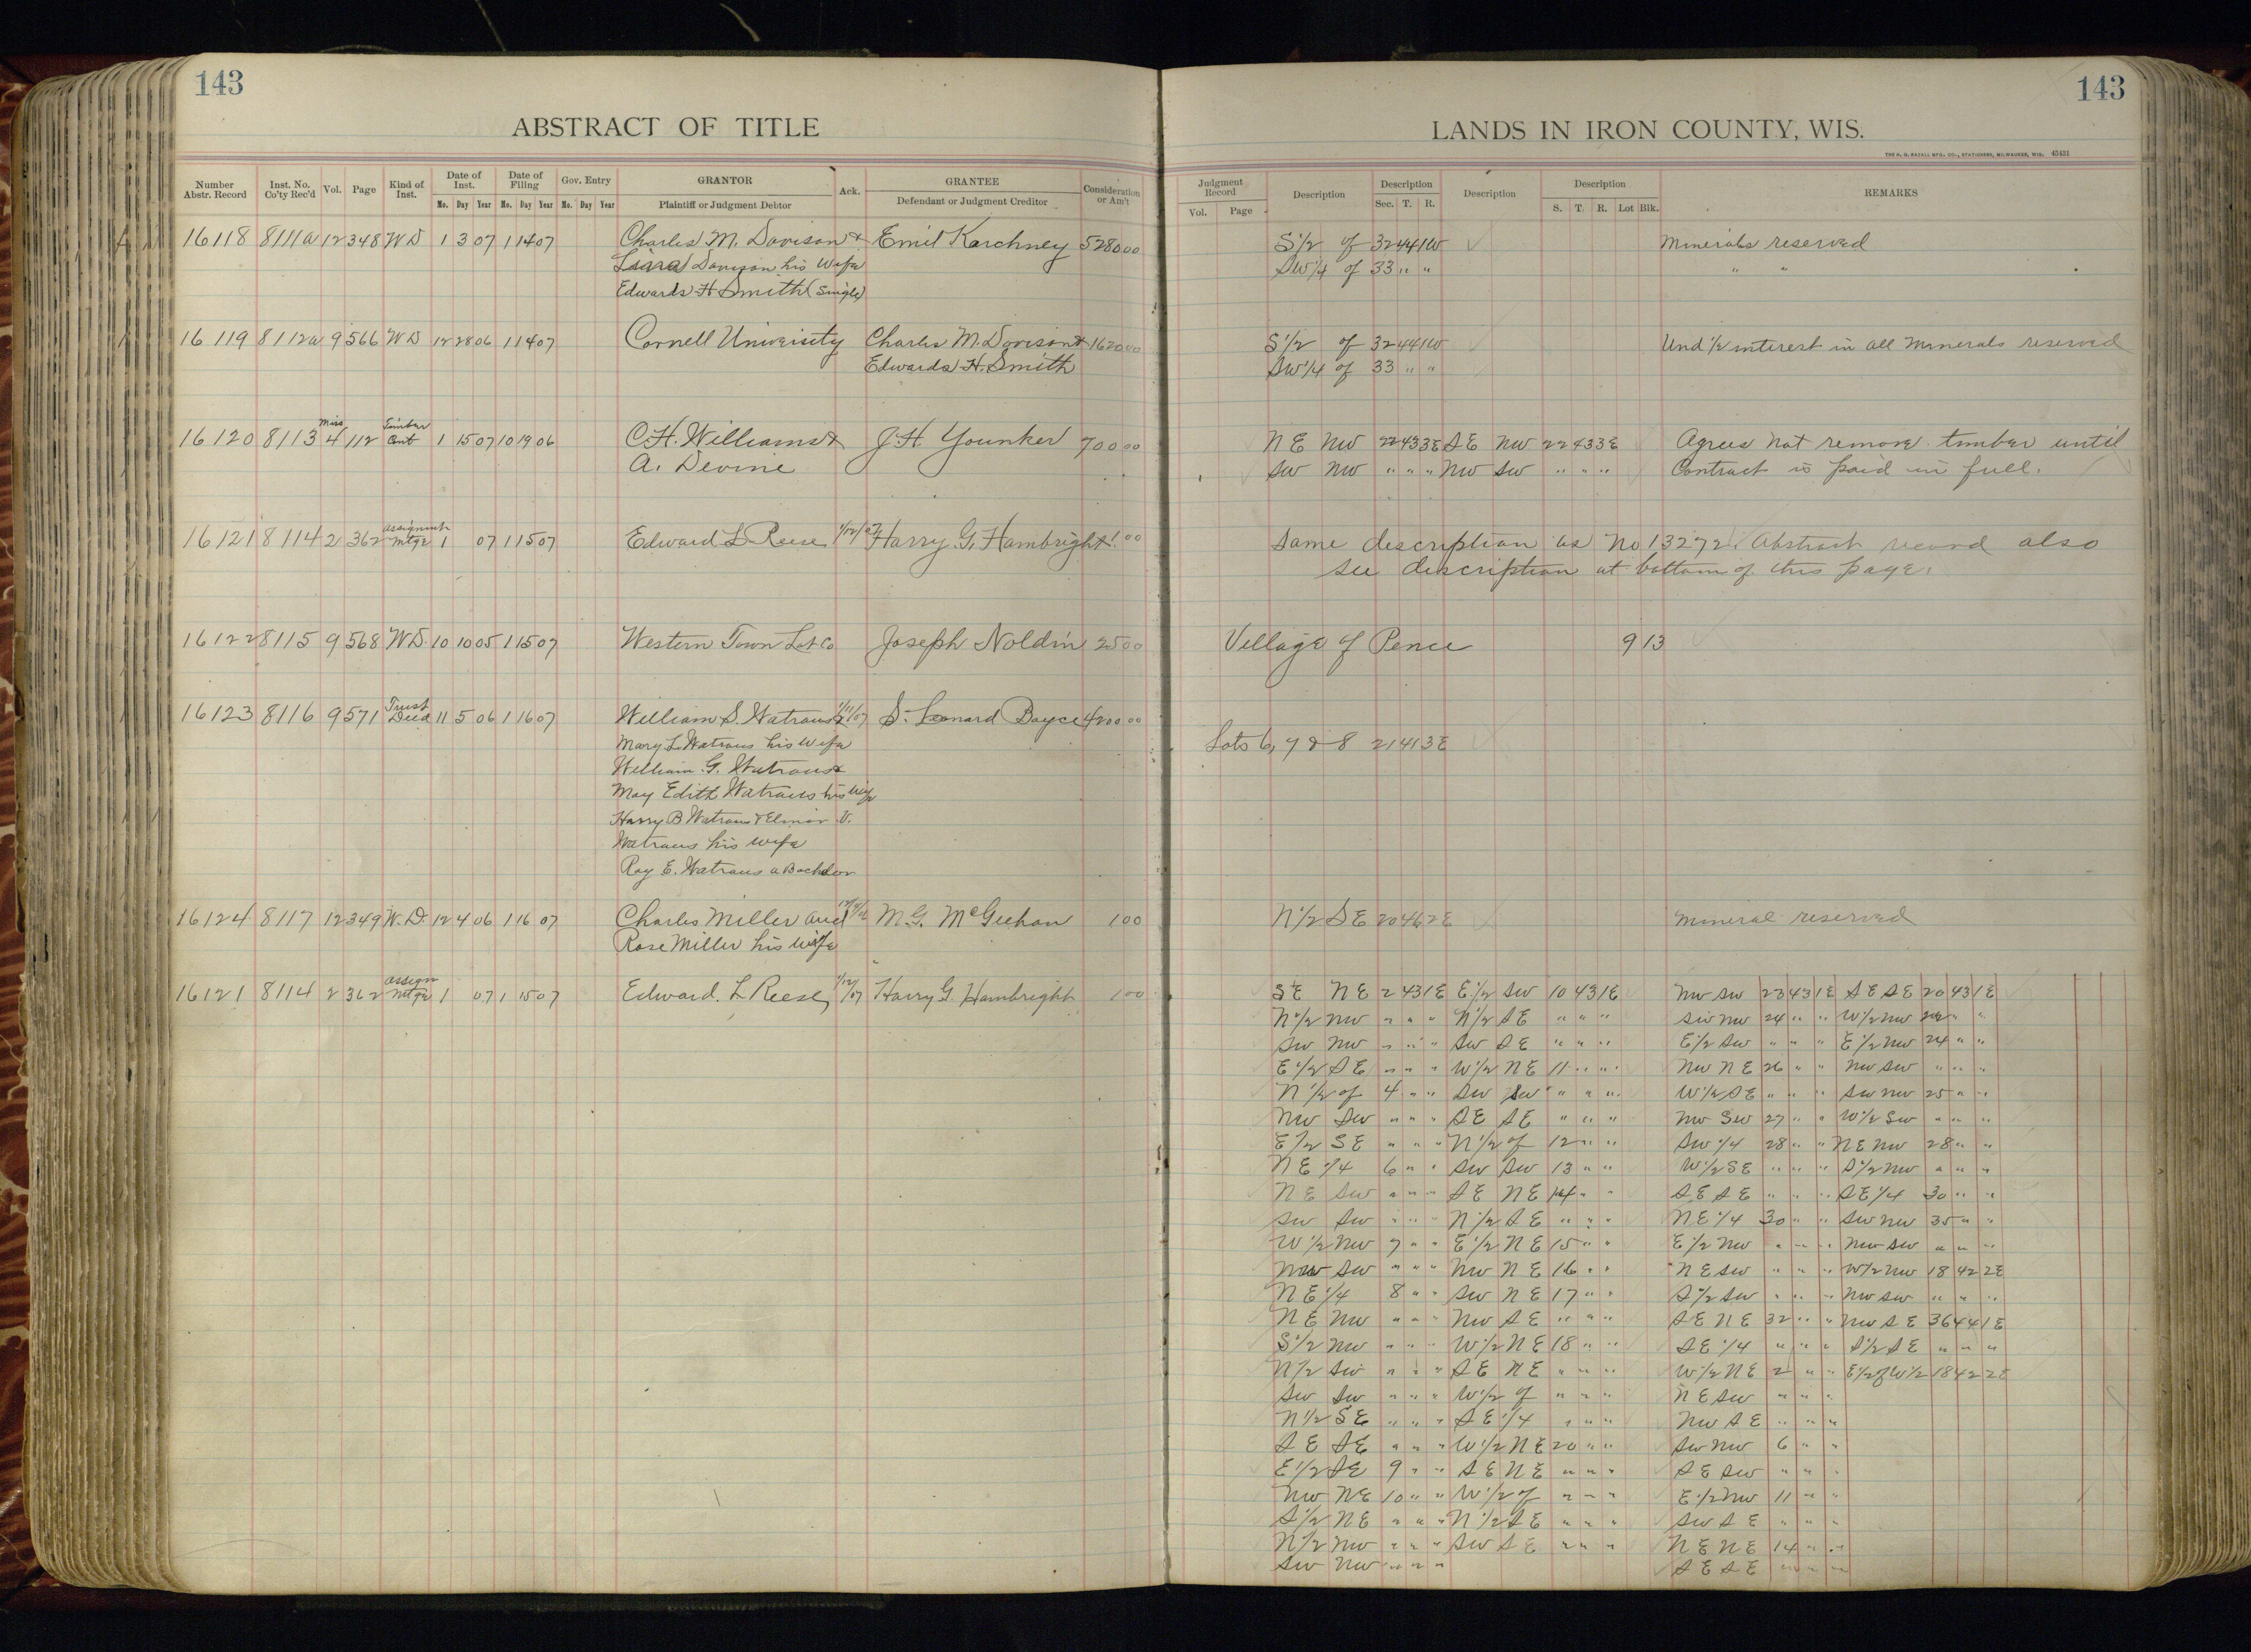 143
ABSTRACT OF TITLE
Number Abstr. Record Inst. No. Co'ty Rec'd Vol. Page Kind of Inst. Date of Inst. Date of Filing Gov. Entry GRANTOR Ack. GRANTEE Consideration or Am't
Mo. Day Year Mo. Day Year Mo. Day Year Plaintiff or Judgment Debtor Defendant or Judgment Creditor
16118 8111a 12 348 WD 1 3 07 1 14 07 Charles M. Davison & Emil Karchney 5280 00
Davison his Wife
Edwards H Smith (Single)
16119 8112a 9 566 WD 12 28 06 1 14 07 Cornell University Charles M. Davison & 1620 00
Edwards H. Smith
16120 8113 Misc 4 112 Timber Cont 1 15 07 10 19 06 C.H. Williams & J.H. Younker 700 00
A. Devine
16121 8114 2 362 Assignment Mtge 1 07 1 15 07 Edward L Reese 1/12/07 Harry G. Hambright 1.00
16122 8115 9 568 W.D. 10 10 05 1 15 07 Western Town Lot Co Joseph Noldin 25 00
16123 8116 9 571 Trust Deed 11 5 06 1 16 07 William S. Watrous & 1/11/07 S. Leonard Boyce 4200 00
Mary L. Watrous his Wife
William. G. Watrous &
May Edith Watrous his Wife
Harry B Watrous & Elinor V.
Watrous his wife
Ray E. Watrous a Bachelor
16124 8117 12 349 W.D. 12 4 06 1 16 07 Charles Miller and M.G. McGeehan 1 00
Rose Miller his Wife
16121 8114 2 362 Assign Mtge 1 07 1 15 07 Edward. L Reese 1/12/07 Harry G. Hambright 1 00
143
LANDS IN IRON COUNTY, WIS.
THE H. G. RAZALL MFG. CO., STATIONERS, MILWAUKEE, WIS. 45431
Judgment Record Description Description Description Description REMARKS
Vol. Page Sec. T. R. S. T. R. Lot Blk.
S 1/2 of 32 44 1W Minerals reserved
SW 1/4 of 33 " " " "
S 1/2 of 32 44 1W Und 1/2 interest in all Minerals reserved
SW 1/4 of 33 " "
NE NW 22 43 3E SE NW 22 43 3E Agrees not remove timber until
SW NW " " " NW SW " " " Contract is paid in full.
Same description as No 13272. Abstract record also
see description at bottom of this page.
Village of Pence 9 13
Lots 6, 7 & 8 21 41 3E
N 1/2 SE 20 46 2E Mineral reserved
SE NE 2 43 1E E 1/2 SW 10 43 1E NW SW 23 43 1E SE SE 20 43 1E
N 1/2 NW " " " N 1/2 SE " " " SW NW 24 " " W 1/2 NW " "
SW NW " " " SW SE " " " E 1/2 SW " " " E 1/2 NW 24 " "
E 1/2 SE " " " W 1/2 NE 11 " " NW NE 26 " " NW SW " " "
N 1/2 of 4 " " SW SW " " " W 1/2 SE " " " SW NW 25 " "
NW SW " " " SE SE " " " NW SW 27 " " W 1/2 SW " " "
E 1/2 SE " " " N 1/2 of 12 " " SW 1/4 28 " " NE NW 28 " "
NE 1/4 6 " " SW SW 13 " " W 1/2 SE " " " S 1/2 NW " " "
NE SW " " " SE NE 14 " " SE SE " " " SE 1/4 30 " "
SW SW " " " N 1/2 SE " " " NE 1/4 30 " " SW NW 35 " "
W 1/2 NW 7 " " E 1/2 NE 15 " " E 1/2 NW " " " NW SW " " "
NW SW " " " NW NE 16 " " NE SW " " " W 1/2 NW 18 42 2E
NE 1/4 8 " " SW NE 17 " " S 1/2 SW " " " NW SW " " "
NE NW " " " NW SE " " " SE NE 32 " " NW SE 36 44 1E
S 1/2 NW " " " W 1/2 NE 18 " " SE 1/4 " " " S 1/2 SE " " "
N 1/2 SW " " " SE NE " " " W 1/2 NE 2 " " E 1/2 of W 1/2 18 42 2E
SW SW " " " W 1/2 of " " " NE SW " " "
N 1/2 SE " " " SE 1/4 " " " NW SE " " "
SE SE " " " W 1/2 NE 20 " " SW NW 6 " "
E 1/2 SE 9 " " SE NE " " " SE SW " " "
NW NE 10 " " W 1/2 of " " " E 1/2 NW 11 " "
S 1/2 NE " " " N 1/2 SE " " " SW SE " " "
N 1/2 NW " " " SW SE " " " NE NE 14 " "
SW NW " " " SE SE " " "